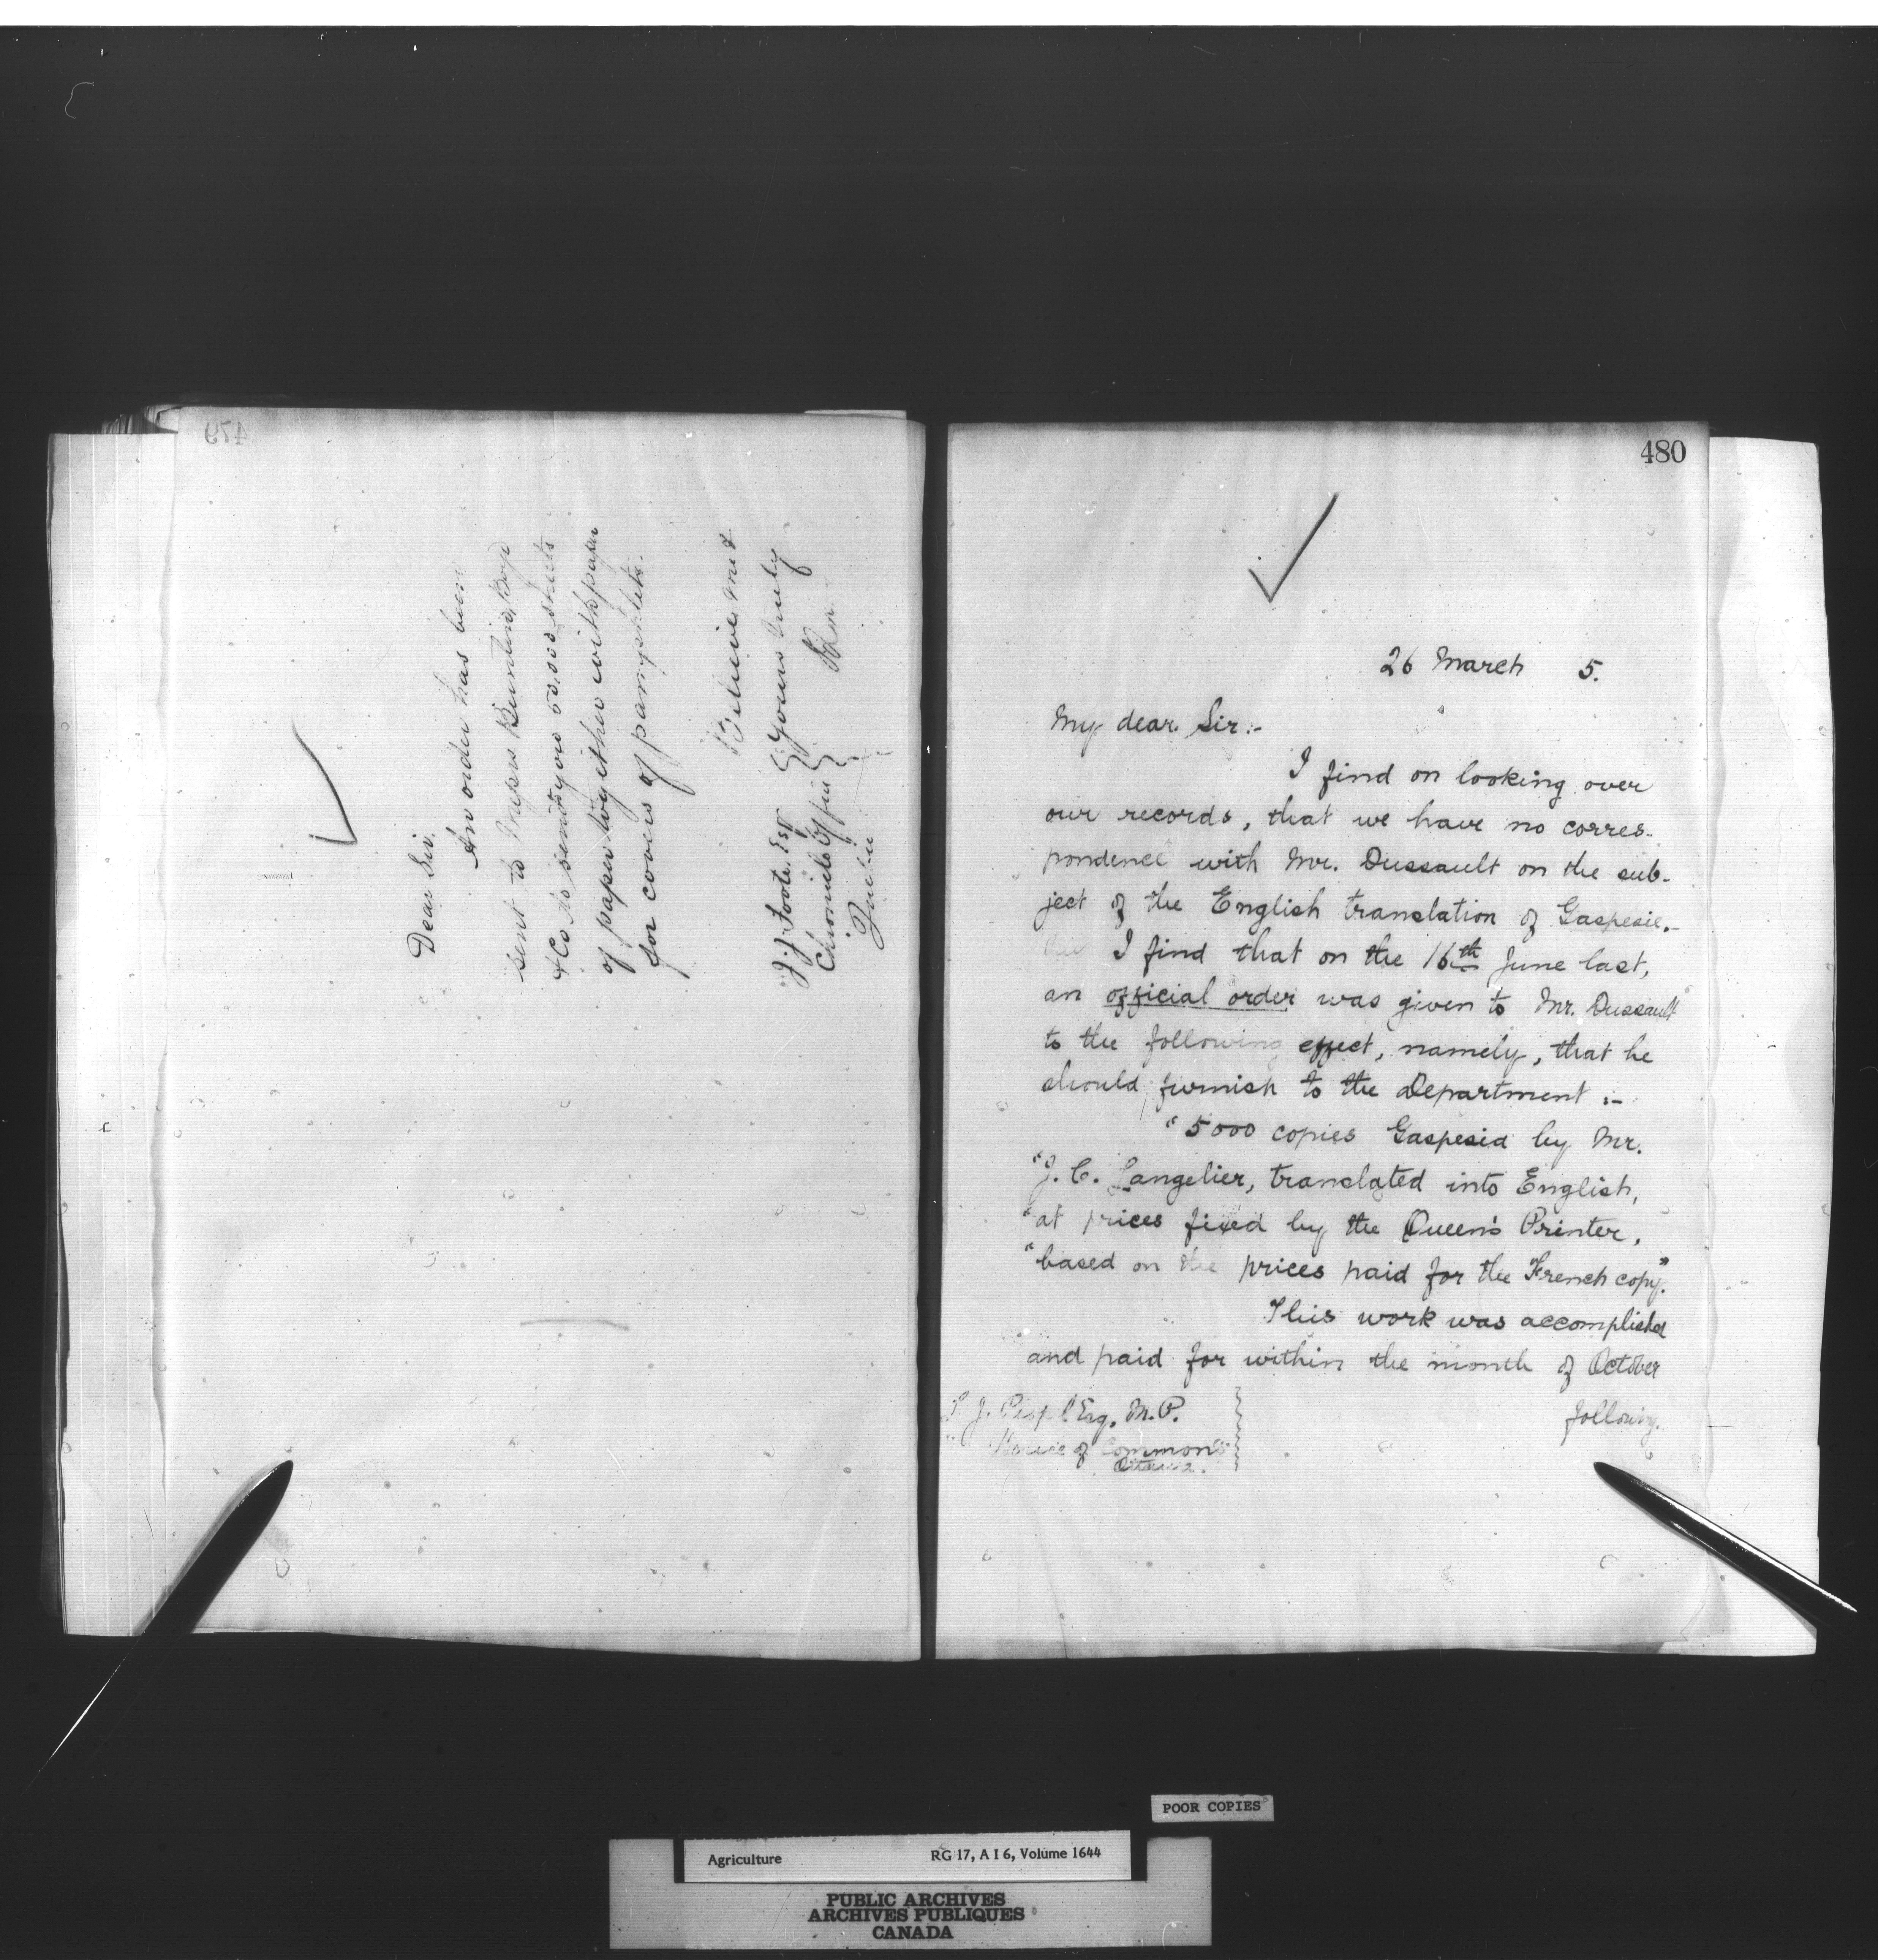 479
Dear Sir.
An order has been
sent to Messrs Buntin, Boyd
& Co. to send you 50,000 sheets
of paper together with paper
for covers of pamphlets.
Believe me
yours truly
J. J. Foote Esq
Chronicle Office
Quebec
480
26 March 5.
My dear Sir:-
I find on looking over
our records, that we have no corres-
pondence with Mr. Dussault on the sub-
ject of the English translation of Gaspesie.-
I find that on the 16th June last,
an official order was given to Mr. Dussault
to the following effect, namely, that he
should furnish to the Department :-
"5000 copies Gaspesia by Mr.
"J. C. Langelier, translated into English,
"at prices fixed by the Queen's Printer,
"based on the prices paid for the French copy."
This work was accomplished
and paid for within the month of October
following.
J. Esq. M.P.
House of Commons
Ottawa.
POOR COPIES
Agriculture RG 17, A I 6, Volume 1644
PUBLIC ARCHIVES
ARCHIVES PUBLIQUES
CANADA